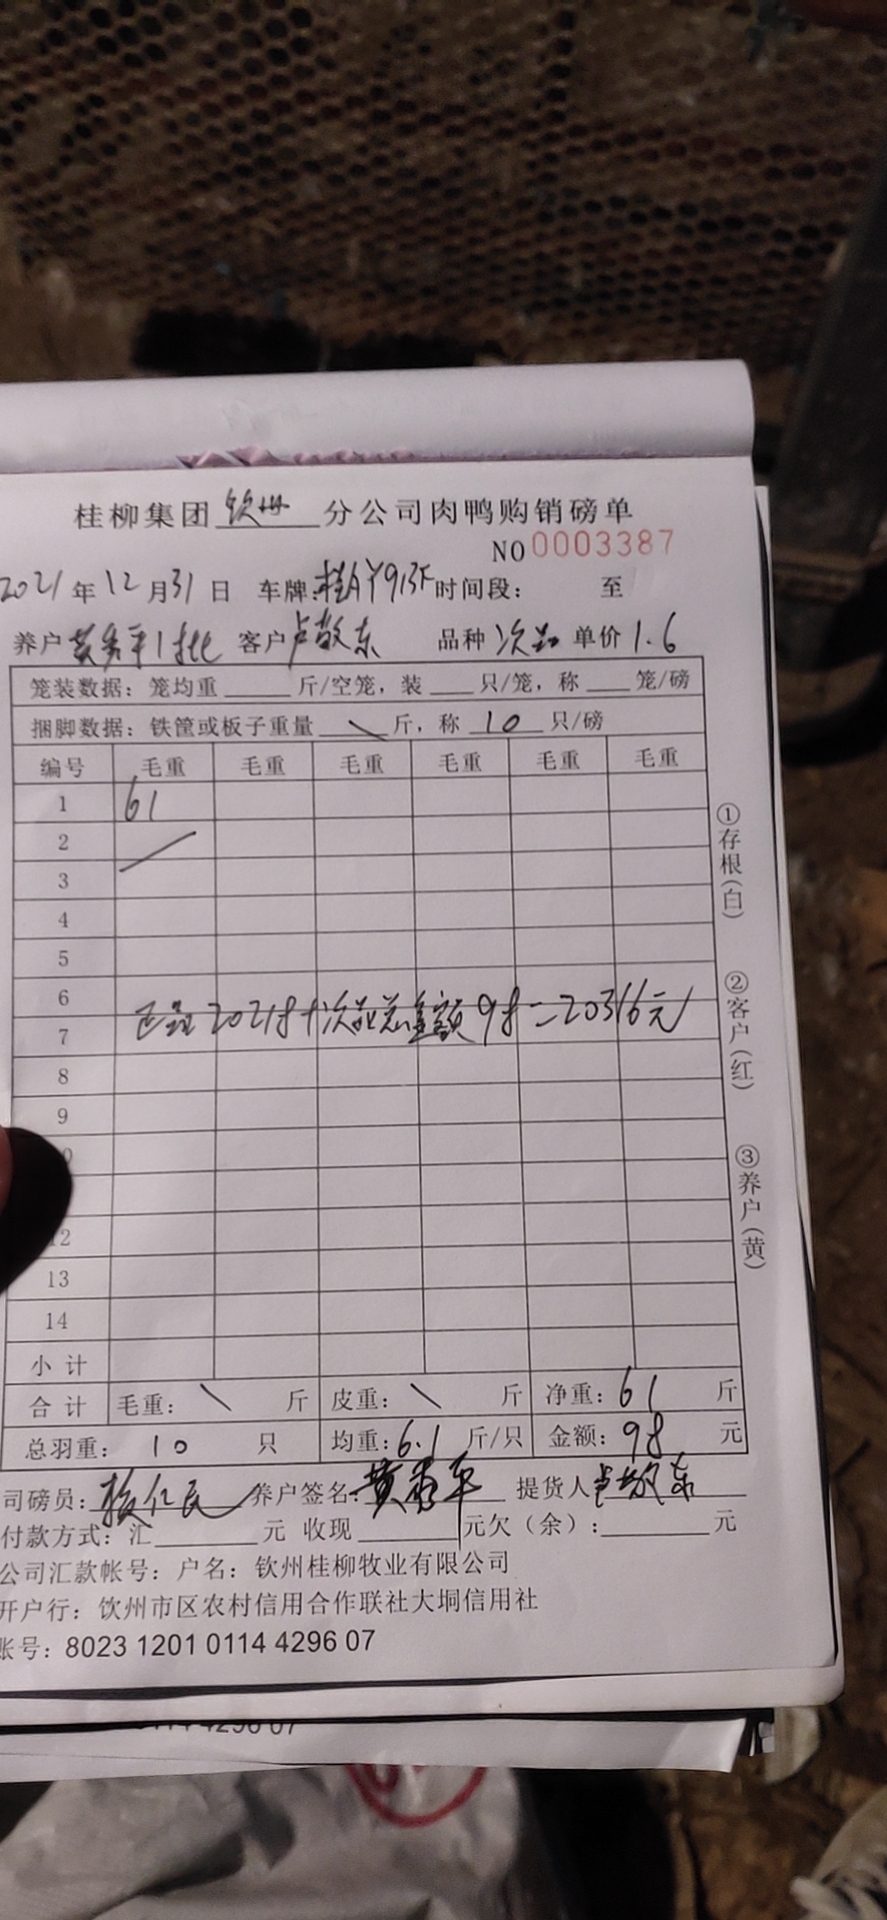 桂柳集团 钦州 分公司肉鸭购销磅单
NO 0003387
2021年12月31日 车牌:桂AY913F 时间段: 至
养户 黄秀平1批 客户 卢敬东 品种 次品 单价 1.6
笼装数据: 笼均重 斤/空笼, 装 只/笼, 称 笼/磅
捆脚数据: 铁筐或板子重量 \ 斤, 称 10 只/磅
编号 毛重 毛重 毛重 毛重 毛重 毛重
1 61
2
3
4
5
6
正品20218+次品总金额98=20316元
7
8
9
0
12
13
14
小计
合计 毛重: \ 斤 皮重: \ 斤 净重: 61 斤
总羽重: 10 只 均重: 6.1 斤/只 金额: 98 元
司磅员: 养户签名: 黄秀平 提货人 卢敬东
付款方式: 汇 元 收现 元欠(余): 元
公司汇款帐号: 户名: 钦州桂柳牧业有限公司
开户行: 饮州市区农村信用合作联社大垌信用社
账号: 8023 1201 0114 4296 07
①存根(白)
②客户(红)
③养户(黄)